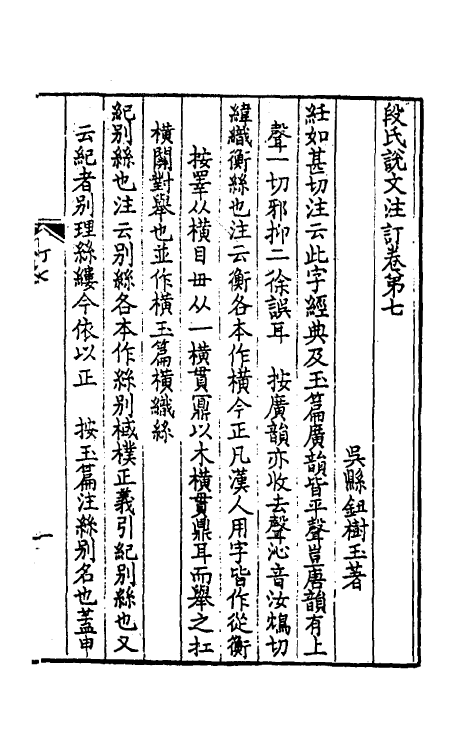 段氏說文注訂卷第七
吳縣鈕樹玉著
紝如甚切注云此字經典及玉篇廣韻皆平聲豈唐韻有上
聲一切邪抑二徐誤耳　按廣韻亦收去聲沁音汝鴆切
緯織衡絲也注云衡各本作橫今正凡漢人用字皆作從衡
按睪从橫目毌从一橫貫鼏以木橫貫鼎耳而舉之扛
橫關對舉也並作橫玉篇橫織絲
紀別絲也注云別絲各本作絲別棫樸正義引紀別絲也又
云紀者別理絲縷今依以正　按玉篇注絲別名也蓋申
一